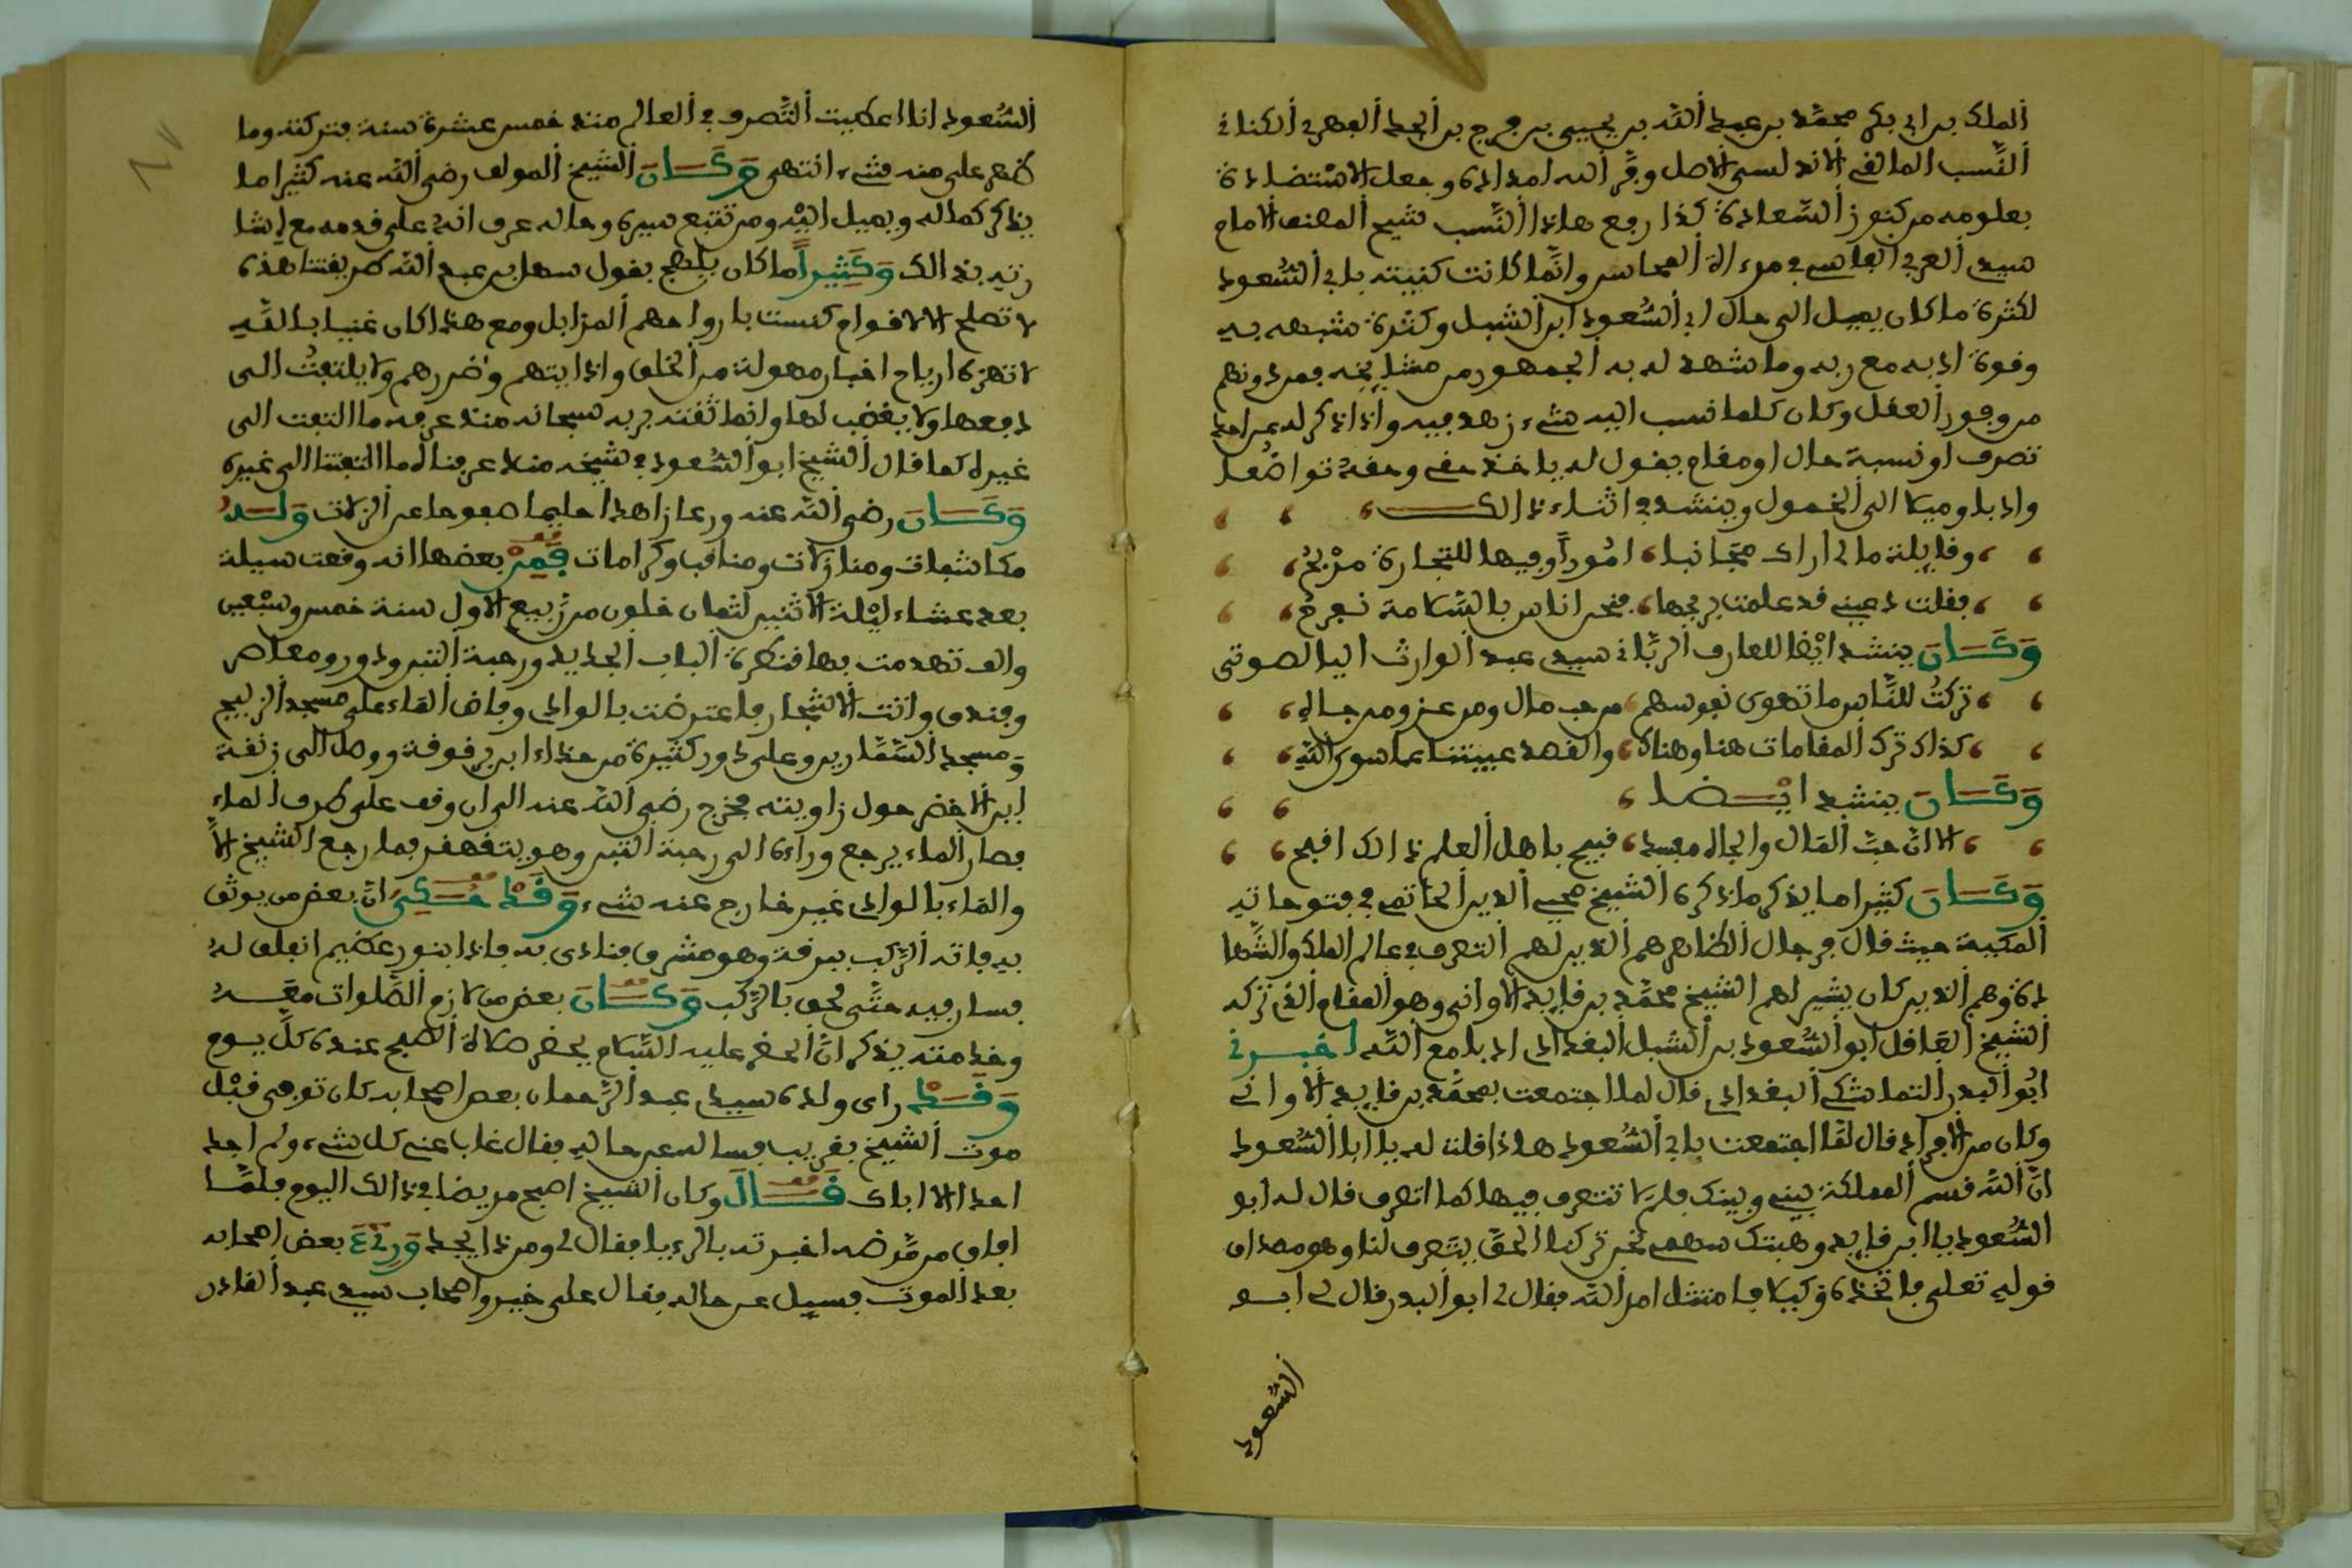 الملك بن ابي بكر محمد بن عبد الله بن يحيى بن فرج بن الجد الفهري الكناني
النسب المالقي الاندلسي الاصل وفر الله امدادك وجعل الاستضاءة
بعلومه من كنوز السعادة كذا رفع هاذا النسب شيخ الامام
سيدي العربي الفاسي في مرءاة المحاسن وانما كانت كنيته بابي السعود
لكثرة ما كان يميل الى حال ابي السعود ابن الشبل وكثرة شبهه به
وقوة ادبه مع ربه وما شهد له به الجمهور من مشايخه فمن دونهم
من وفور العقل وكان كلما نسب اليه شيء زهد فيه واذا ذكر له عن احد
تصرف او نسبة حال او مقام يقول له ياخذ حقي وحقه تواضعا
وادبا وميلا الى الخمول وينشد في اثناء ذالك
وقايلة ما لي اراك مجانبا امورا وفيها للتجارة مربح
فقلت دعيني قد علمت بربحها فنحن اناس بالسلامة نفرح
وكان ينشد ايضا للعارف الرباني سيدي عبد الوارث اليالصوتي
تركت للناس ما تهوى نفوسهم من حب مال ومن عز ومن جاه
كذاك ترك المقامات هنا وهناك والقصد غيبتنا عما سوى الله
وكان ينشد ايضا
الا ان حب المال والجاه مفسد قبيح باهل العلم ذالك اقبح
وكان كثيرا ما يذكر ما ذكره الشيخ محيي الدين الحاتمي في فتوحاته
المكية حيث قال في رجال الظاهر هم الذين لهم التصرف في عالم الملك والشها
دة وهم الذين كان يشير لهم الشيخ محمد بن قايد الاواني وهو المقام الذي تركه
الشيخ العاقل ابو السعود بن الشبل البغدادي ادبا مع الله اخبرني
ابو البدر التماشكي البغدادي قال لما اجتمعت بمحمد بن قايد الاواني
وكان من الافراد قال لما اجتمعت بابي السعود هاذا قلت له يا ابا السعود
ان الله قسم المملكة بيني وبينك فلم لا تتصرف فيها كما اتصرف قال له ابو
السعود يا ابن قايد وهبتك سهمي نحن تركنا الحق يتصرف لنا وهو مصداق
قوله تعالى فاتخذه وكيلا فامتثل امر الله فقال لي ابو البدر قال لي ابو
السعود
السعود اني اعطيت التصرف في العالم منذ خمس عشرة سنة فتركته وما
ظهر علي منه شيء انتهى وكان الشيخ المولف رضي الله عنه كثيرا ما
يذكر كماله ويميل اليه ومن تتبع سيره وحاله عرف انه على قدمه مع اشا
رته بذالك وكثيرا ما كان يلهج بقول سهل بن عبد الله طريقتنا هذه
لا تصلح الا لاقوام كنست بارواحهم المزابل ومع هذا كان غنيا بالله
لا تهزه ارياح اخبار مهولة من الخلق واذايتهم وضررهم ولا يلتفت الى
دفعها ولا يغضب لها وانما ثقته بربه سبحانه منذ عرفه ما التفت الى
غيره كما قال الشيخ ابو السعود في شيخه منذ عرفناه ما التفتنا الى غيره
وكان رضي الله عنه ورعا زاهدا حليما صفوحا عن الزلات وله
مكاشفات ومنازلات ومناقب وكرامات فمن بعضها انه وقعت سيلة
بعد عشاء ليلة الاثنين لثمان خلون من ربيع الاول سنة خمس وسبعين
والف تهدمت بها قنطرة الباب الجديد ورحبة التبن ودور ومعاصر
وفندق واتت الاشجار فاعترضت بالوادي وفاض الماء على مسجد الزليج
ومسجد السمارين وعلى دور كثيرة من حذاء ابن برقوقة ووصل الى زنقة
ابن الاخضر حول زاويته فخرج رضي الله عنه الى ان وقف على طرف الماء
فصار الماء يرجع وراءه الى رحبة التبن وهو يتقهقر فما رجع الشيخ الا
والماء بالوادي غير خارج عنه شيء وقد حكي ان بعض من يوثق
به فاته الركب ببرقة وهو مشرق فنادى به فاذا بنور عظيم انفلق له
فسار فيه حتى لحق بالركب وكان بعض من لازم الصلوات معه
وخدمته يذكر ان الخضر عليه السلام يحضر صلاة الصبح عنده كل يوم
وقد راى ولده سيدي عبد الرحمان بعض اصحابه كان توفي قبل
موت الشيخ بقريب فساله عن حاله فقال غاب عني كل شيء ولم اجد
احدا الا اباك قال وكان الشيخ اصبح مريضا في ذالك اليوم فلما
افاق من مرضه اخبرته بالرءيا فقال لي ومن ذا يجد ورئي بعض اصحابه
بعد الموت فسيل عن حاله فقال على خير واصحاب سيدي عبد القادر